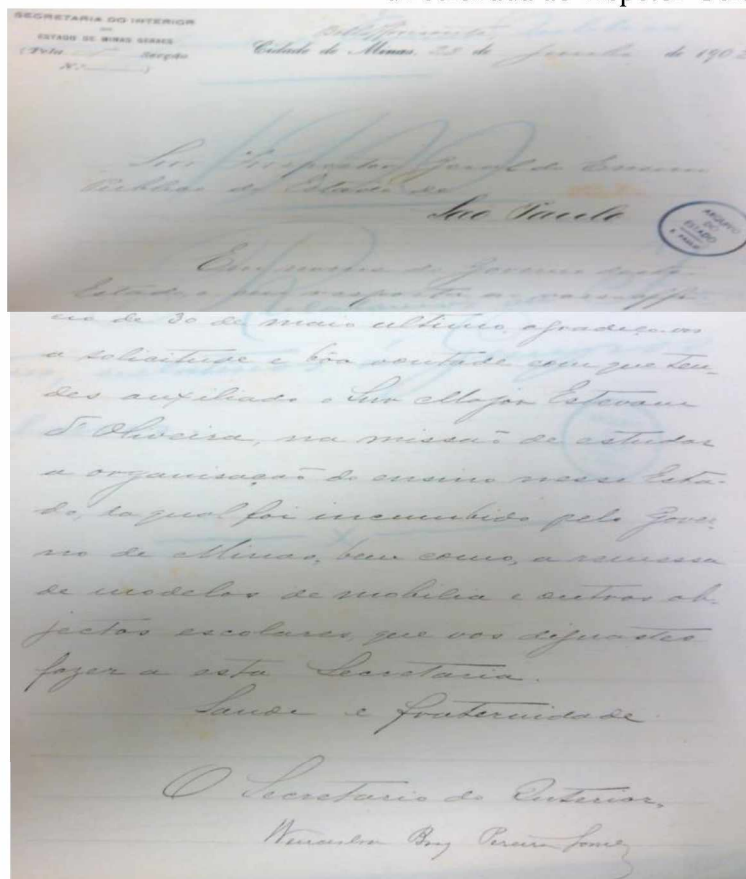 SECRETARIA DO INTERIOR
DO
ESTADO DE MINAS GERAES
Secção
N.
Bello Horizonte
Cidade de Minas, 23 de Junho de 190
Snr. Inspector Geral do Ensino
Publico do Estado de
São Paulo
ARQUIVO
DO
ESTADO
S. PAULO
Em nome do Governo deste
Estado e em resposta ao vosso offi-
cio de 30 de maio ultimo, agradeço-vos
a solicitude e bôa vontade com que ten-
des auxiliado o Snr Major Estevam
d'Oliveira, na missão de estudar
a organisação do ensino nesse Esta-
do, da qual foi incumbido pelo Gover-
no de Minas, bem como, a remessa
de modelos de mobilia e outros ob-
jectos escolares, que vos dignastes
fazer a esta Secretaria.
Saude e fraternidade
O Secretario do Interior,
Wenceslau Braz Pereira Gomes